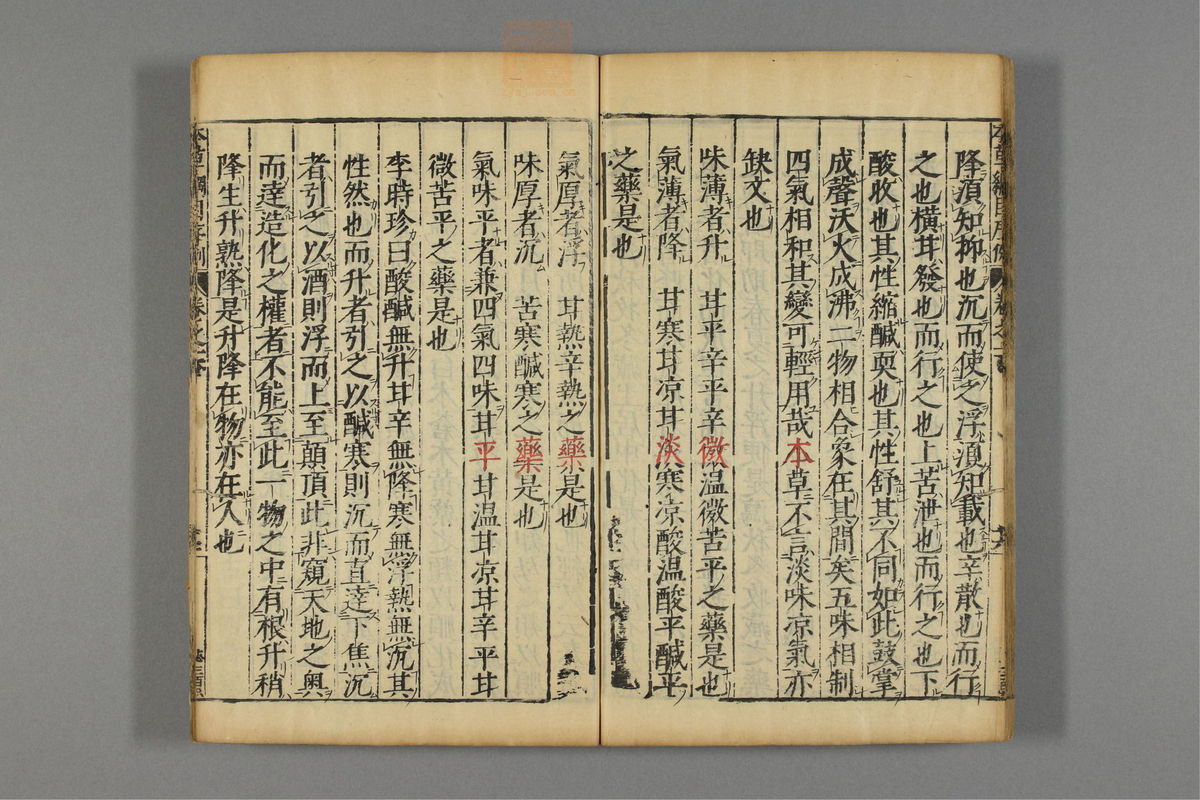 降須知抑也沉而使之浮須知載也辛散也而行
之也橫甘發也而行之也上苦泄也而行之也下
酸收也其性縮鹹耎也其性舒其不同如此鼓掌
成聲沃火成沸二物相合象在其間矣五味相制
四氣相和其變可輕用哉本草不言淡味凉氣亦
缺文也
味薄者升　甘平辛平辛微溫微苦平之藥是也
氣薄者降　甘寒甘凉甘淡寒凉酸溫酸平鹹平
之藥是也
氣厚者浮　甘熱辛熱之藥是也
味厚者沉　苦寒鹹寒之藥是也
氣味平者兼四氣四味甘平甘温甘凉甘辛平甘
微苦平之藥是也
李時珍曰酸鹹無升甘辛無降寒無浮熱無沉其
性然也而升者引之以鹹寒則沉而直達下焦沉
者引之以酒則浮而上至顛頂此非窺天地之奧
而達造化之權者不能至此一物之中有根升稍
降生升熟降是升降在物亦在人也